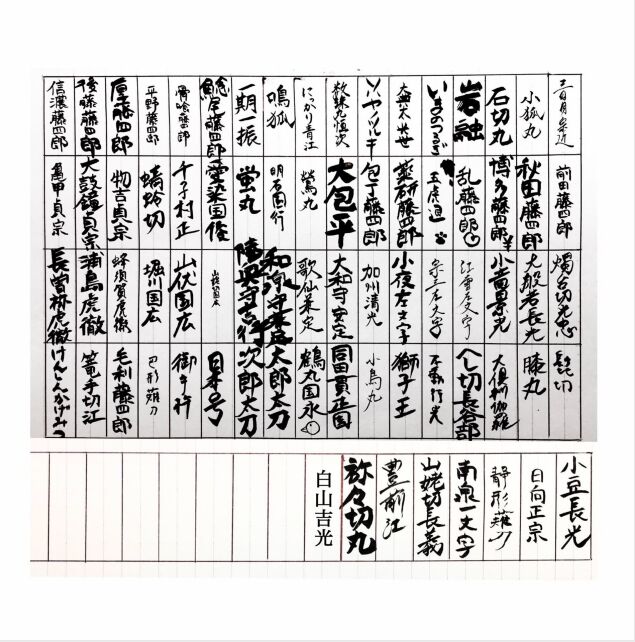 三日月宗近
小狐丸
石切丸
岩融
いまのつるぎ
大典太光世
ソハヤノツルキ
数珠丸恒次
にっかり青江
鳴狐
一期一振
鯰尾藤四郎
骨喰藤四郎
平野藤四郎
厚藤四郎
後藤藤四郎
信濃藤四郎
前田藤四郎
秋田藤四郎
博多藤四郎
乱藤四郎
五虎退
薬研藤四郎
包丁藤四郎
大包平
鶯丸
明石国行
蛍丸
愛染国俊
千子村正
蜻蛉切
物吉貞宗
太鼓鐘貞宗
亀甲貞宗
燭台切光忠
大般若長光
小竜景光
江雪左文字
宗三左文字
小夜左文字
加州清光
大和守安定
歌仙兼定
和泉守兼定
陸奥守吉行
山姥切国広
山伏国広
堀川国広
蜂須賀虎徹
浦島虎徹
長曽祢虎徹
髭切
膝丸
大倶利伽羅
へし切長谷部
不動行光
獅子王
小烏丸
同田貫正国
鶴丸国永
太郎太刀
次郎太刀
日本号
御手杵
巴形薙刀
毛利藤四郎
篭手切江
けんしんかげみつ
小豆長光
日向正宗
静形薙刀
南泉一文字
山姥切長義
豊前江
祢々切丸
白山吉光